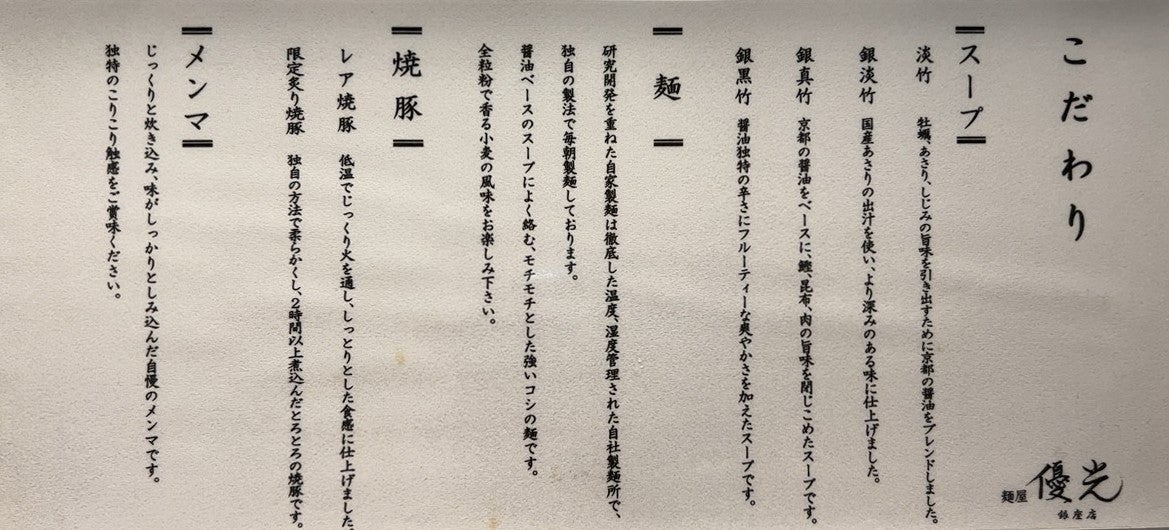 こだわり
スープ
淡竹 牡蠣、あさり、しじみの旨味を引き出すために京都の醤油をブレンドしました。
銀淡竹 国産あさりの出汁を使い、より深みのある味に仕上げました。
銀真竹 京都の醤油をベースに、鰹、昆布、肉の旨味を閉じこめたスープです。
銀黒竹 醤油独特の辛さにフルーティーな爽やかさを加えたスープです。
麺
研究開発を重ねた自家製麺は徹底した温度、湿度管理された自社製麺所で、
独自の製法で毎朝製麺しております。
醤油ベースのスープによく絡む、モチモチとした強いコシの麺です。
全粒粉で香る小麦の風味をお楽しみ下さい。
焼豚
レア焼豚 低温でじっくり火を通し、しっとりとした食感に仕上げました。
限定炙り焼豚 独自の方法で柔らかくし、2時間以上煮込んだとろとろの焼豚です。
メンマ
じっくりと炊き込み、味がしっかりとしみ込んだ自慢のメンマです。
独特のこりこり触感をご賞味ください。
麺屋 優光
銀座店